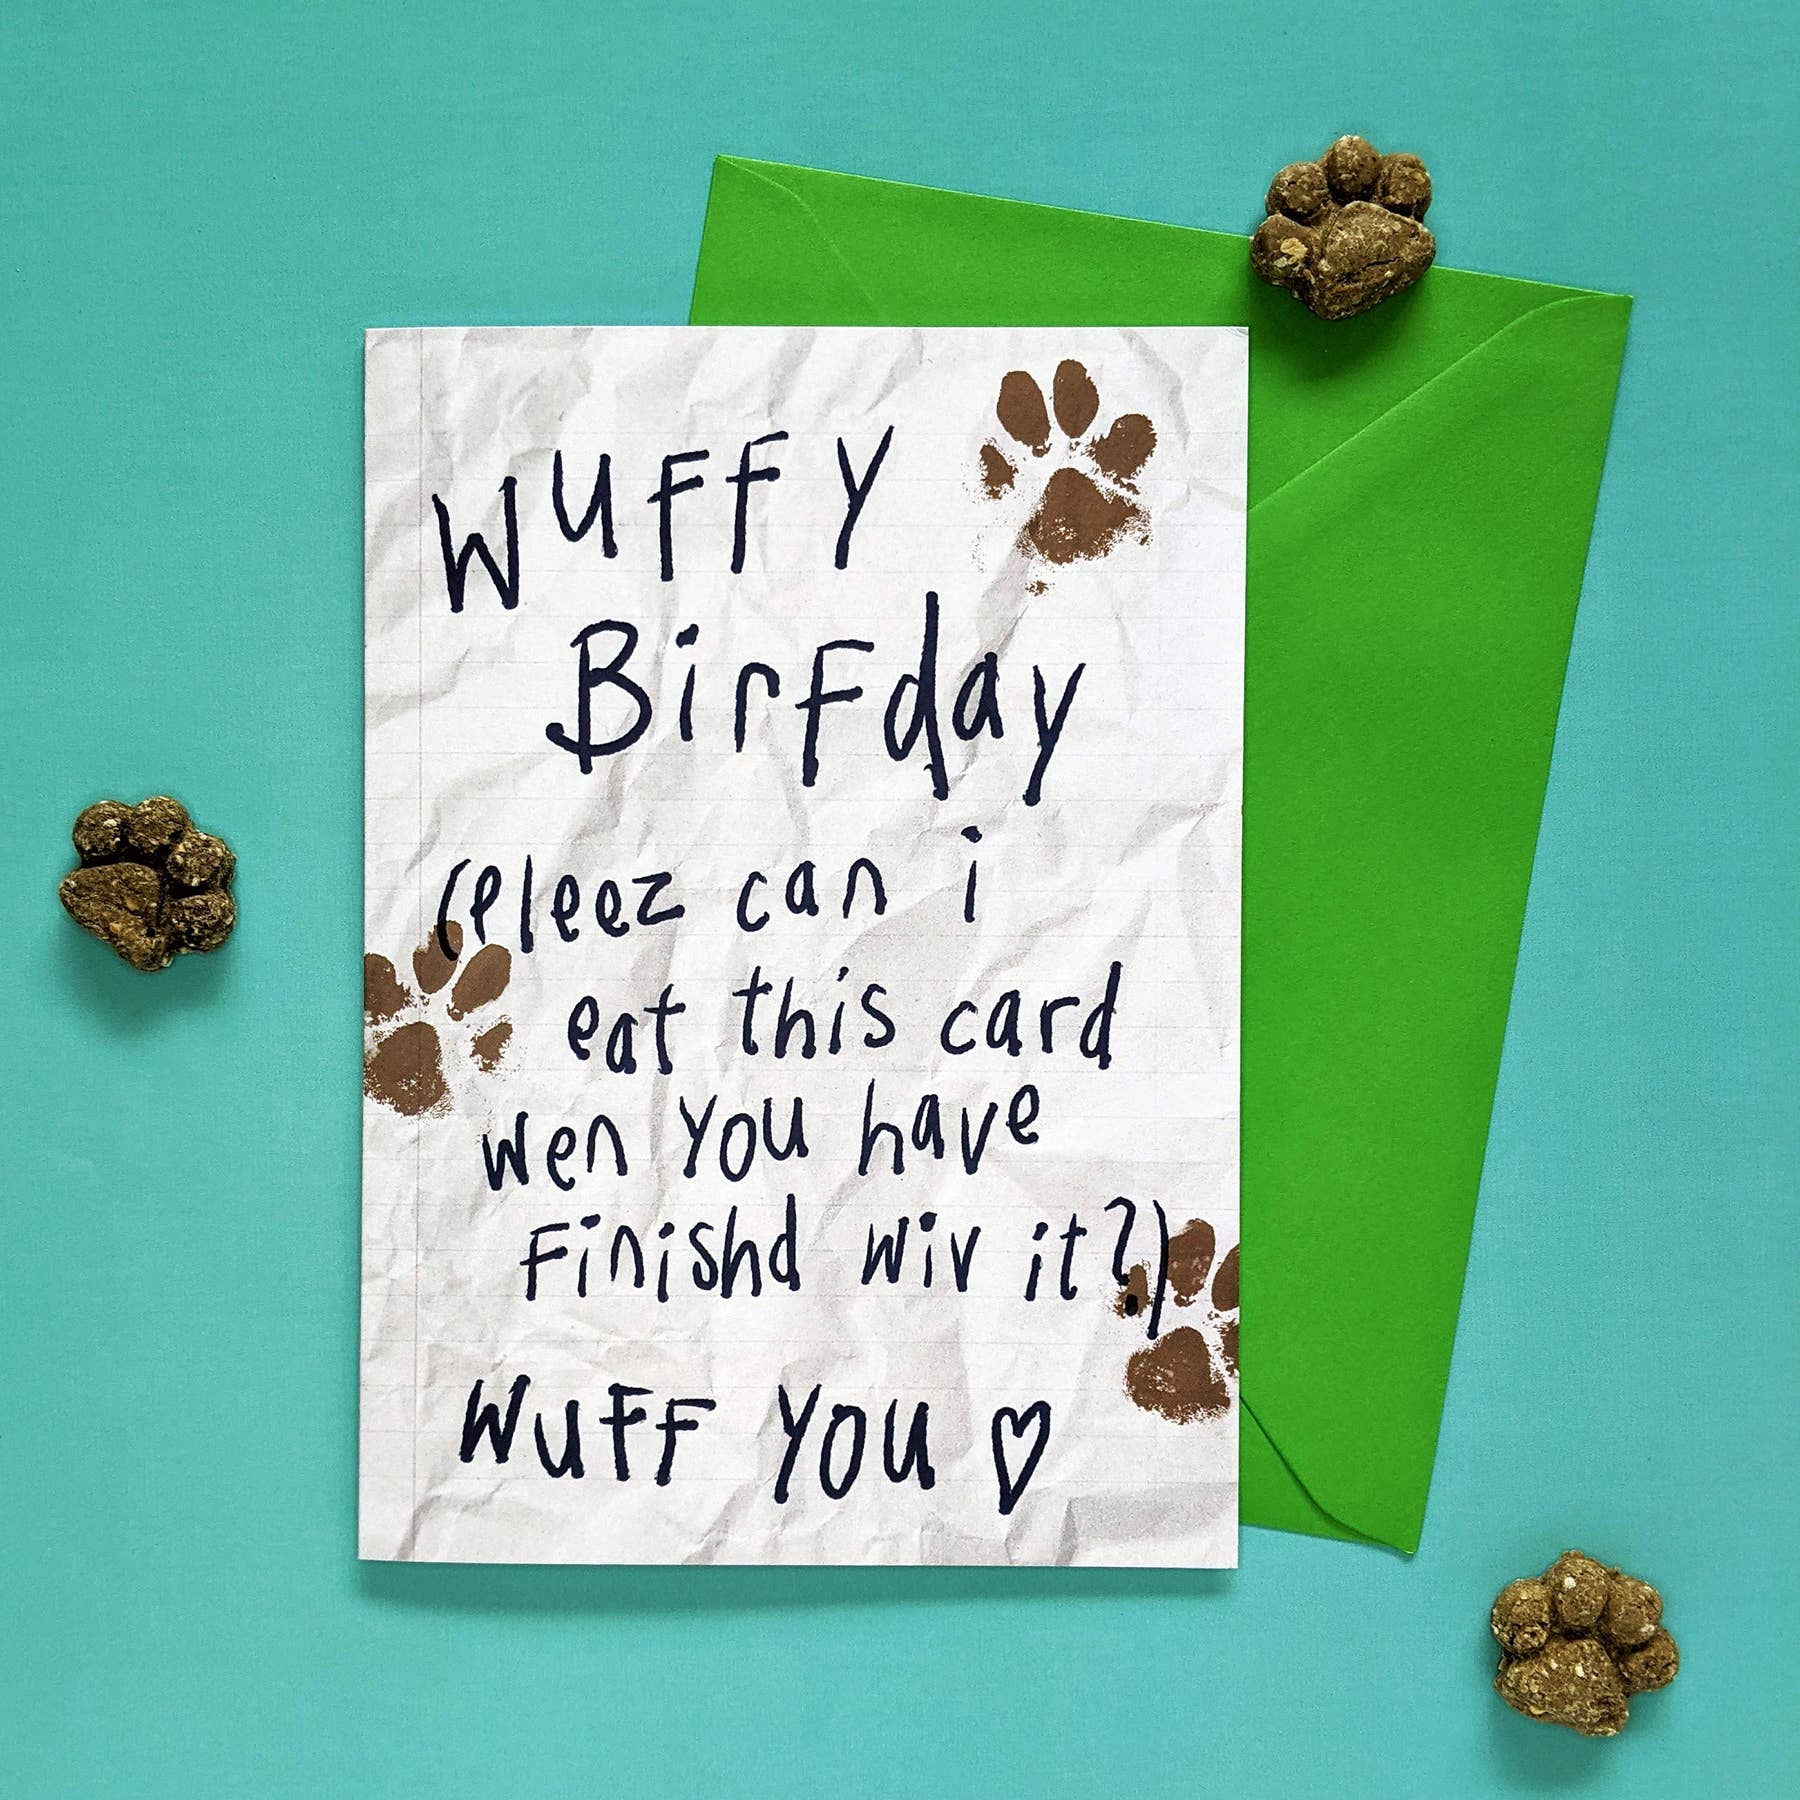 Wuffy
Birfday
(pleez can i
eat this card
wen you have
finishd wiv it?)
Wuff you ♡